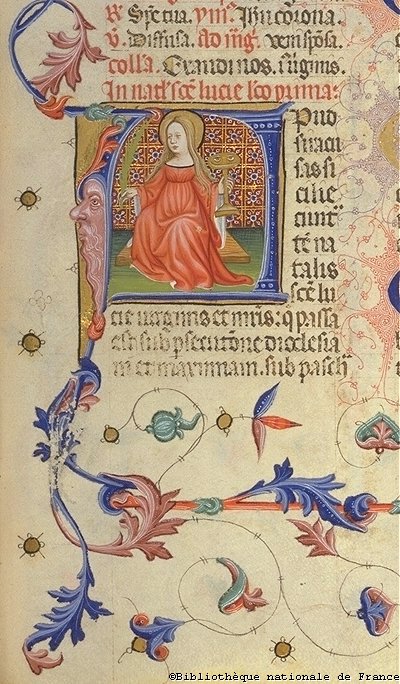 R Specia. viii. Ihu corona.
V Diffusa. ad mg. veni sposa.
colla. Exaudi nos. s. ugnis.
In natl sce lucie lco prima:
Apud
siracu
sas si
cilie
ciuit
te na
talis
sce lu
cie uirginis et mris: q passa
est sub psecutone dioclesia
ni et maximiani. sub pasch
©Bibliothèque nationale de France